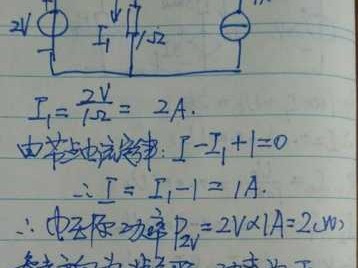 2V I₁ 1Ω
I₁ = 2V/1Ω = 2A.
由节点电流定律: I-I₁+1=0
∴ I = I₁-1 = 1A.
∴ 电压源功率 P₂ᵥ = 2V×1A = 2(W)